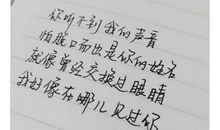 你听不到我的声音
怕脱口而出是你的姓名
就像曾经交换过眼睛
我好像在哪儿见过你